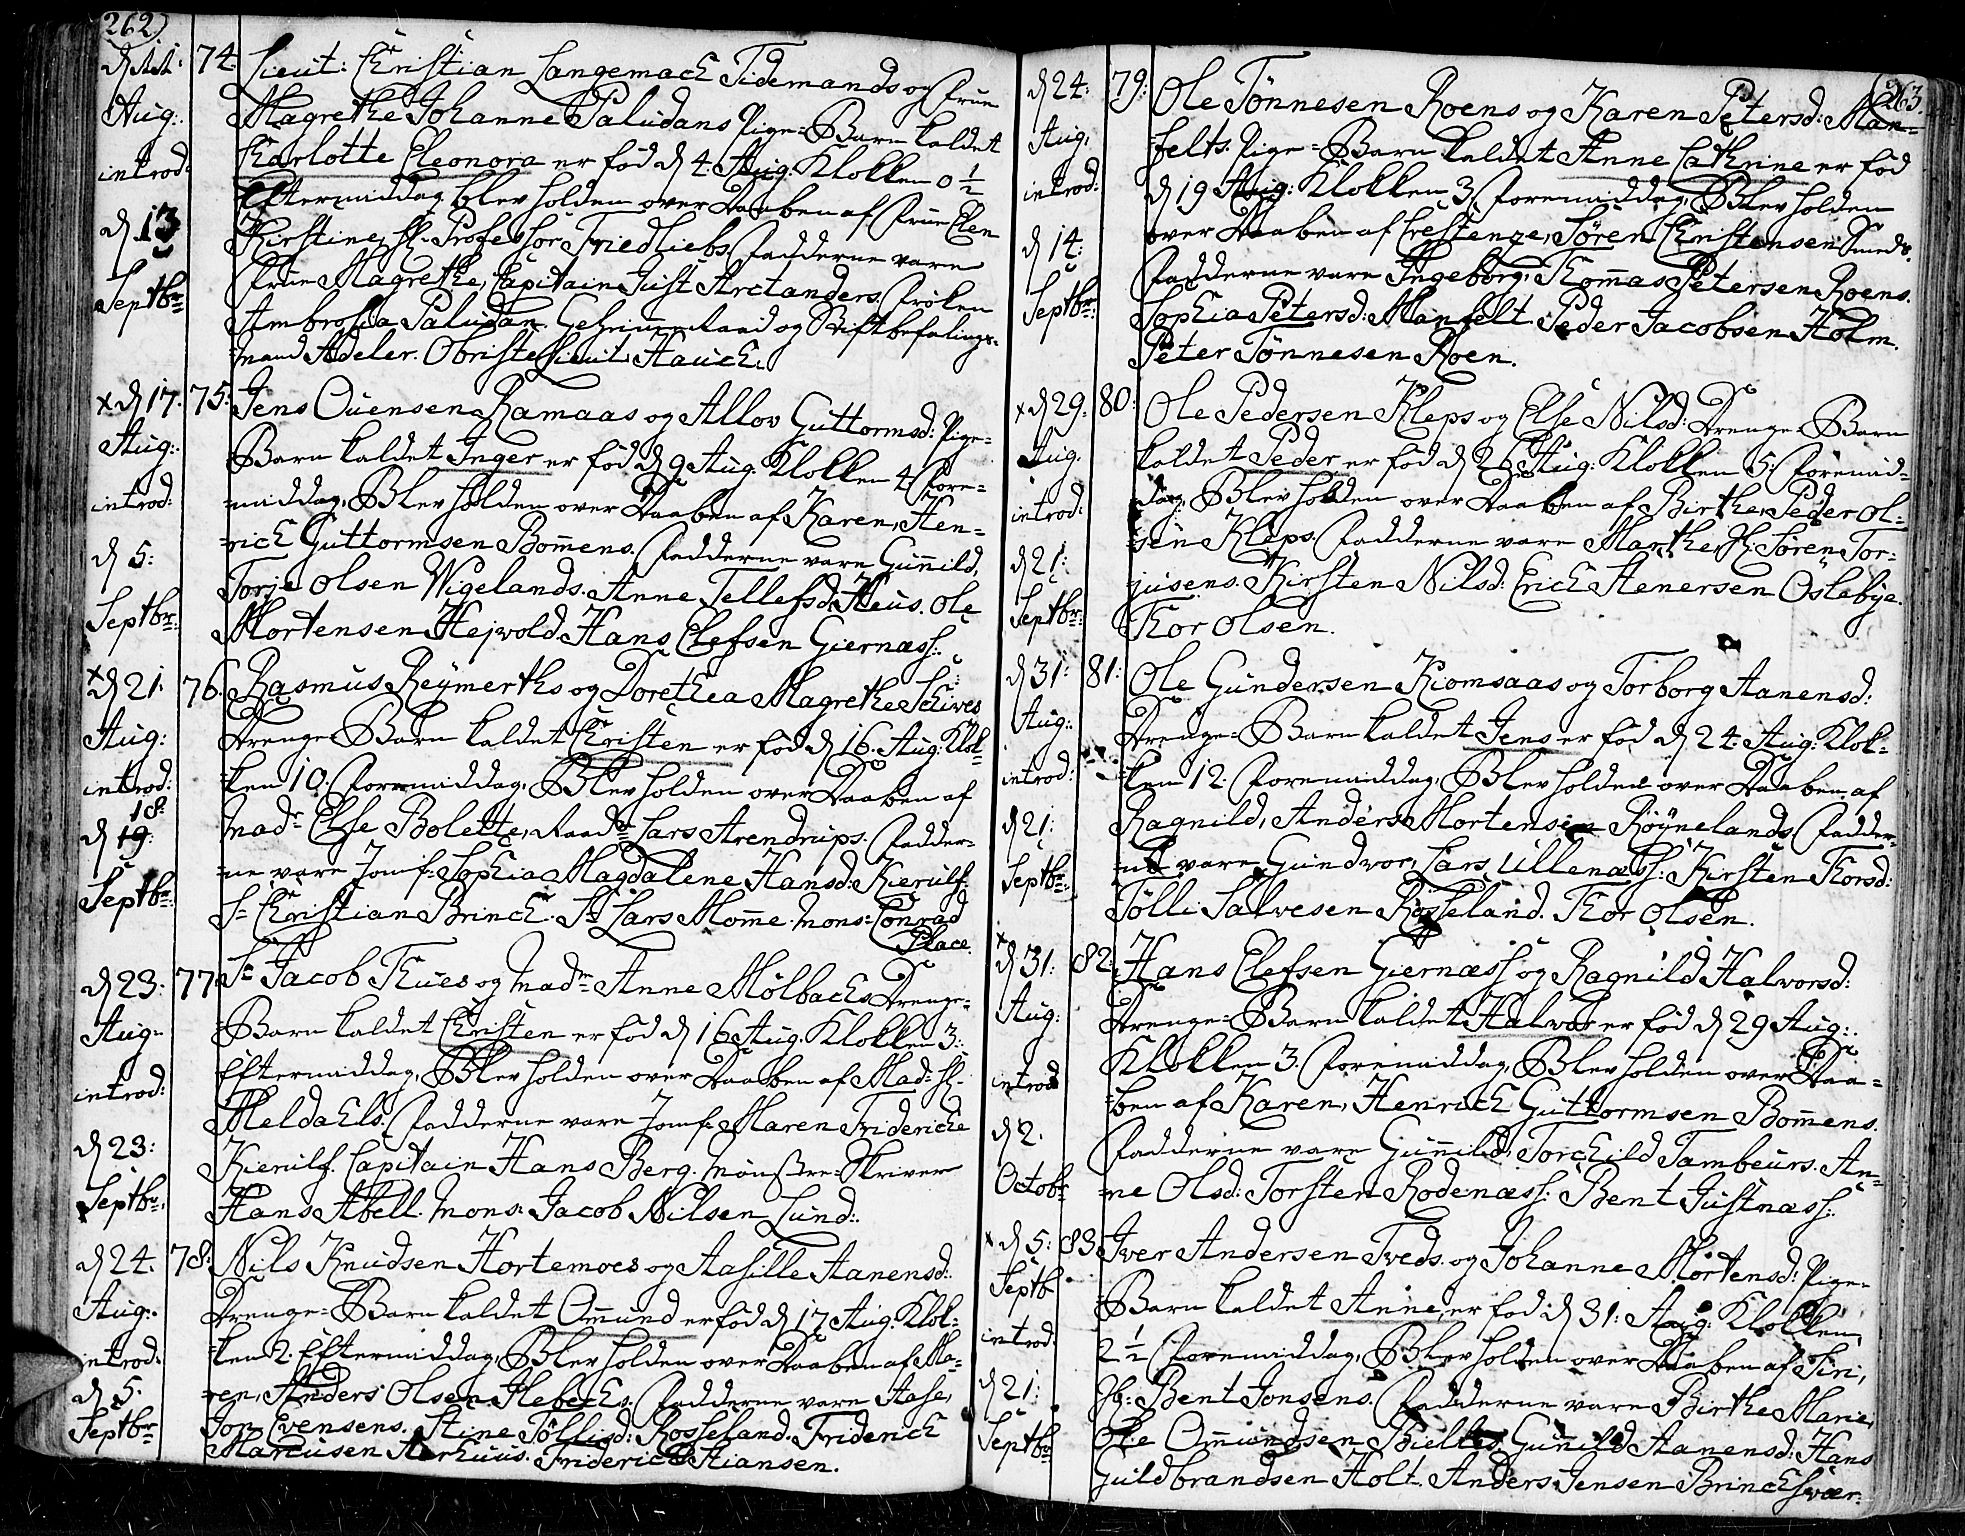 262)
d 11: Aug: introd: d 13 Septbr:
74. Lieut: Christian Langemach Tidemands og Frue
Magrethe Johanne Paludans Pige-Barn kaldet
Charlotte Eleonora er fød d 4. Aug: Klokken 0 1/2
Eftermiddag, blev holden over Daaben af Frue Elen
Kirstine, Sl: Professor Friedliebs. Fadderne vare
Frue Magrethe, Capitain Just Arctanders. Frøken
Ambrosia Paludan. Geheimme Raad og Stiftbefalings-
mand Adeler. Obriste Lieut: Hauch.
x d 17. Aug: introd: d 5: Septbr:
75: Jens Ouensen Ramaas og Allov Guttormsd: Pige-
Barn kaldet Inger er fød d 9 Aug: Klokken 4 Fore-
-middag, Blev holden over Daaben af Karen, Hen-
-rich Guttormsen Bommens. Fadderne vare Gunnild,
Torje Olsen Wigelands. Anne Tellefsd: Heus. Ole
Mortensen Hejvold. Hans Elefsen Giernæss:
x d 21. Aug: introd: 18. d 19: Septbr:
76. Rasmus Reymerths og Dorethea Magrethe Schives
Drenge-Barn kaldet Christen er fød d 16. Aug: Klok-
-ken 10. Formiddag, Blev holden over Daaben af
Madr Else Bolette, Raadr Lars Arendrups. Fadder-
-ne vare Jomf: Sophia Magdalene Hansd: Kierulf:
Sr Christian Brinch. Sr Lars Momme. Mons: Conrad
Place.
d 23: Aug: introd: d 23: Septbr:
77. Sr Jacob Thues og Madm Anne Mølbachs Drenge-
Barn kaldet Christen er fød d 16 Aug. Klokken 3:
Eftermiddag, Blev holden over Daaben af Mad: Sl:
Meldahls. Fadderne vare Jomf: Maren Frideriche
Kierulf. Capitain Hans Berg. Mønstre-Skriver
Hans Abell. Mons: Jacob Nilsen Lund:
d 24. Aug: introd: d 5. Septbr
78: Nils Knudsen Hortemoes og Aasille Aanensd:
Drenge-Barn kaldet Ommund er fød d 17 Aug. Klok-
-ken 2. Eftermiddag, Blev holden over Daaben af Ma-
ren, Anders Olsen Klebechs. Fadderne vare Aase,
Jon Evensens. Stine Tøllisd: Rosseland. Friderich
Marcusen Aarhuus. Friderich Stiansen.
263.
d 24: Aug. introd: d 14: Septbr:
79: Ole Tønnesen Roens og Karen Petersd: Man-
felts. Pige-Barn kaldet Anne Cathrine er fød
d 19 Aug: Klokken 3. Formiddag, Blev holden
over Daaben af Crestenze, Søren Christensen Smeds.
Fadderne vare Ingeborg, Thommas Petersen Roens.
Sophia Petersd: Manfelt. Peder Jacobsen Holm.
Peter Tønnesen Roen.
x d 29. Aug. introd: d 21: Septbr:
80: Ole Pedersen Kleps og Else Nilsd: Drenge-Barn
kaldet Peder er fød d 26 Aug: Klokken 5: Foremid-
dag, Blev holden over Daaben af Birthe, Peder Ol-
-sen Kleps. Fadderne vare Marthe, Sl: Søren Tor-
jusens. Kirsten Nilsd: Erich Aenersen Oslebye.
Thor Olsen.
d 31: Aug: introd: d 21: Septbr:
81: Ole Gundersen Kiomsaas og Torborg Aanensd:
Drenge-Barn kaldet Jens er fød d 24. Aug: Klok-
-ken 12. Foremiddag, Blev holden over Daaben af
Ragnild, Anders Mortensen Røynelands. Fadder-
ne vare Gundvor, Lars Ullenæss: Kirsten Thorsd:
Tølli Salvesen Rosseland. Thor Olsen.
x d 31. Aug: introd d 2. Octobr
82: Hans Elefsen Giernæss: og Ragnild Halvorsd:
Drenge-Barn kaldet Halvor er fød d 29 Aug:
Klokken 3. Foremiddag, Blev holden over Daa-
-ben af Karen, Henrich Guttormsen Bommens.
Fadderne vare Gunnild, Torchild Tambeurs. An-
ne Olsd: Torsten Rodenæss: Bent Justnæss:
x d 5: Septb introd: d 21: Septbr
83 Iver Andersen Tveds. og Johanne Mortensd: Pige-
Barn kaldet Anne, er fød d 31: Aug: Klokken
2 1/2 Foremiddag, Blev holden over Daaben af Siri,
Sl: Bent Jonsens. Fadderne vare Birthe Marie,
Ole Ommundsen Gunnild Aanensd: Hans
Guldbrandsen Holt. Anders Jensen Brinchsvær: